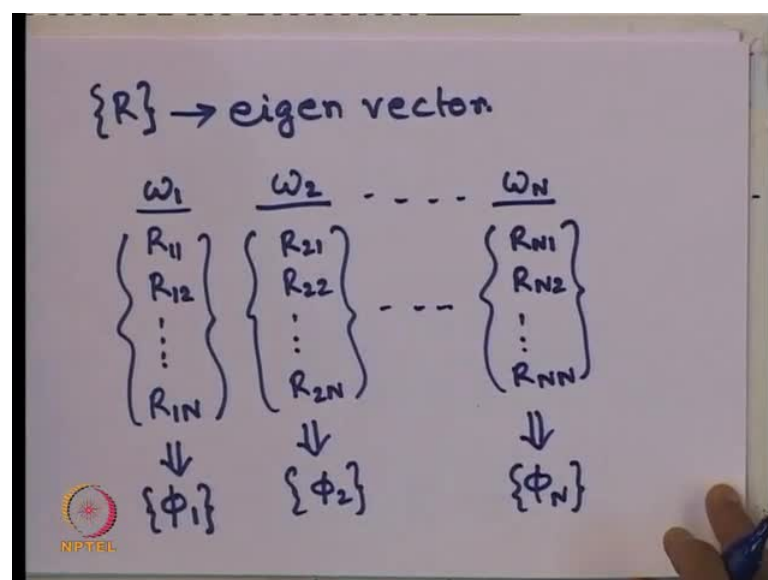 {R} → eigen vector.
ω₁ ω₂ - - - - ω_N
{R₁₁ R₁₂ ⋮ R₁N} {R₂₁ R₂₂ ⋮ R₂N} - - - {R_N1 R_N2 ⋮ R_NN}
⇓ ⇓ ⇓
{φ₁} {φ₂} {φ_N}
NPTEL